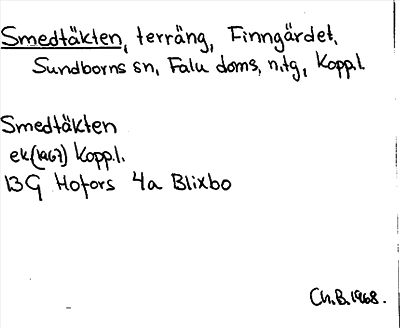 Smedtäkten, terräng, Finngärdet,
Sundborns sn, Falu doms, n.tg, Kopp.l.
Smedtäkten
ek(1967) Kopp.l.
13G Hofors 4a Blixbo
Ch.B.1968.